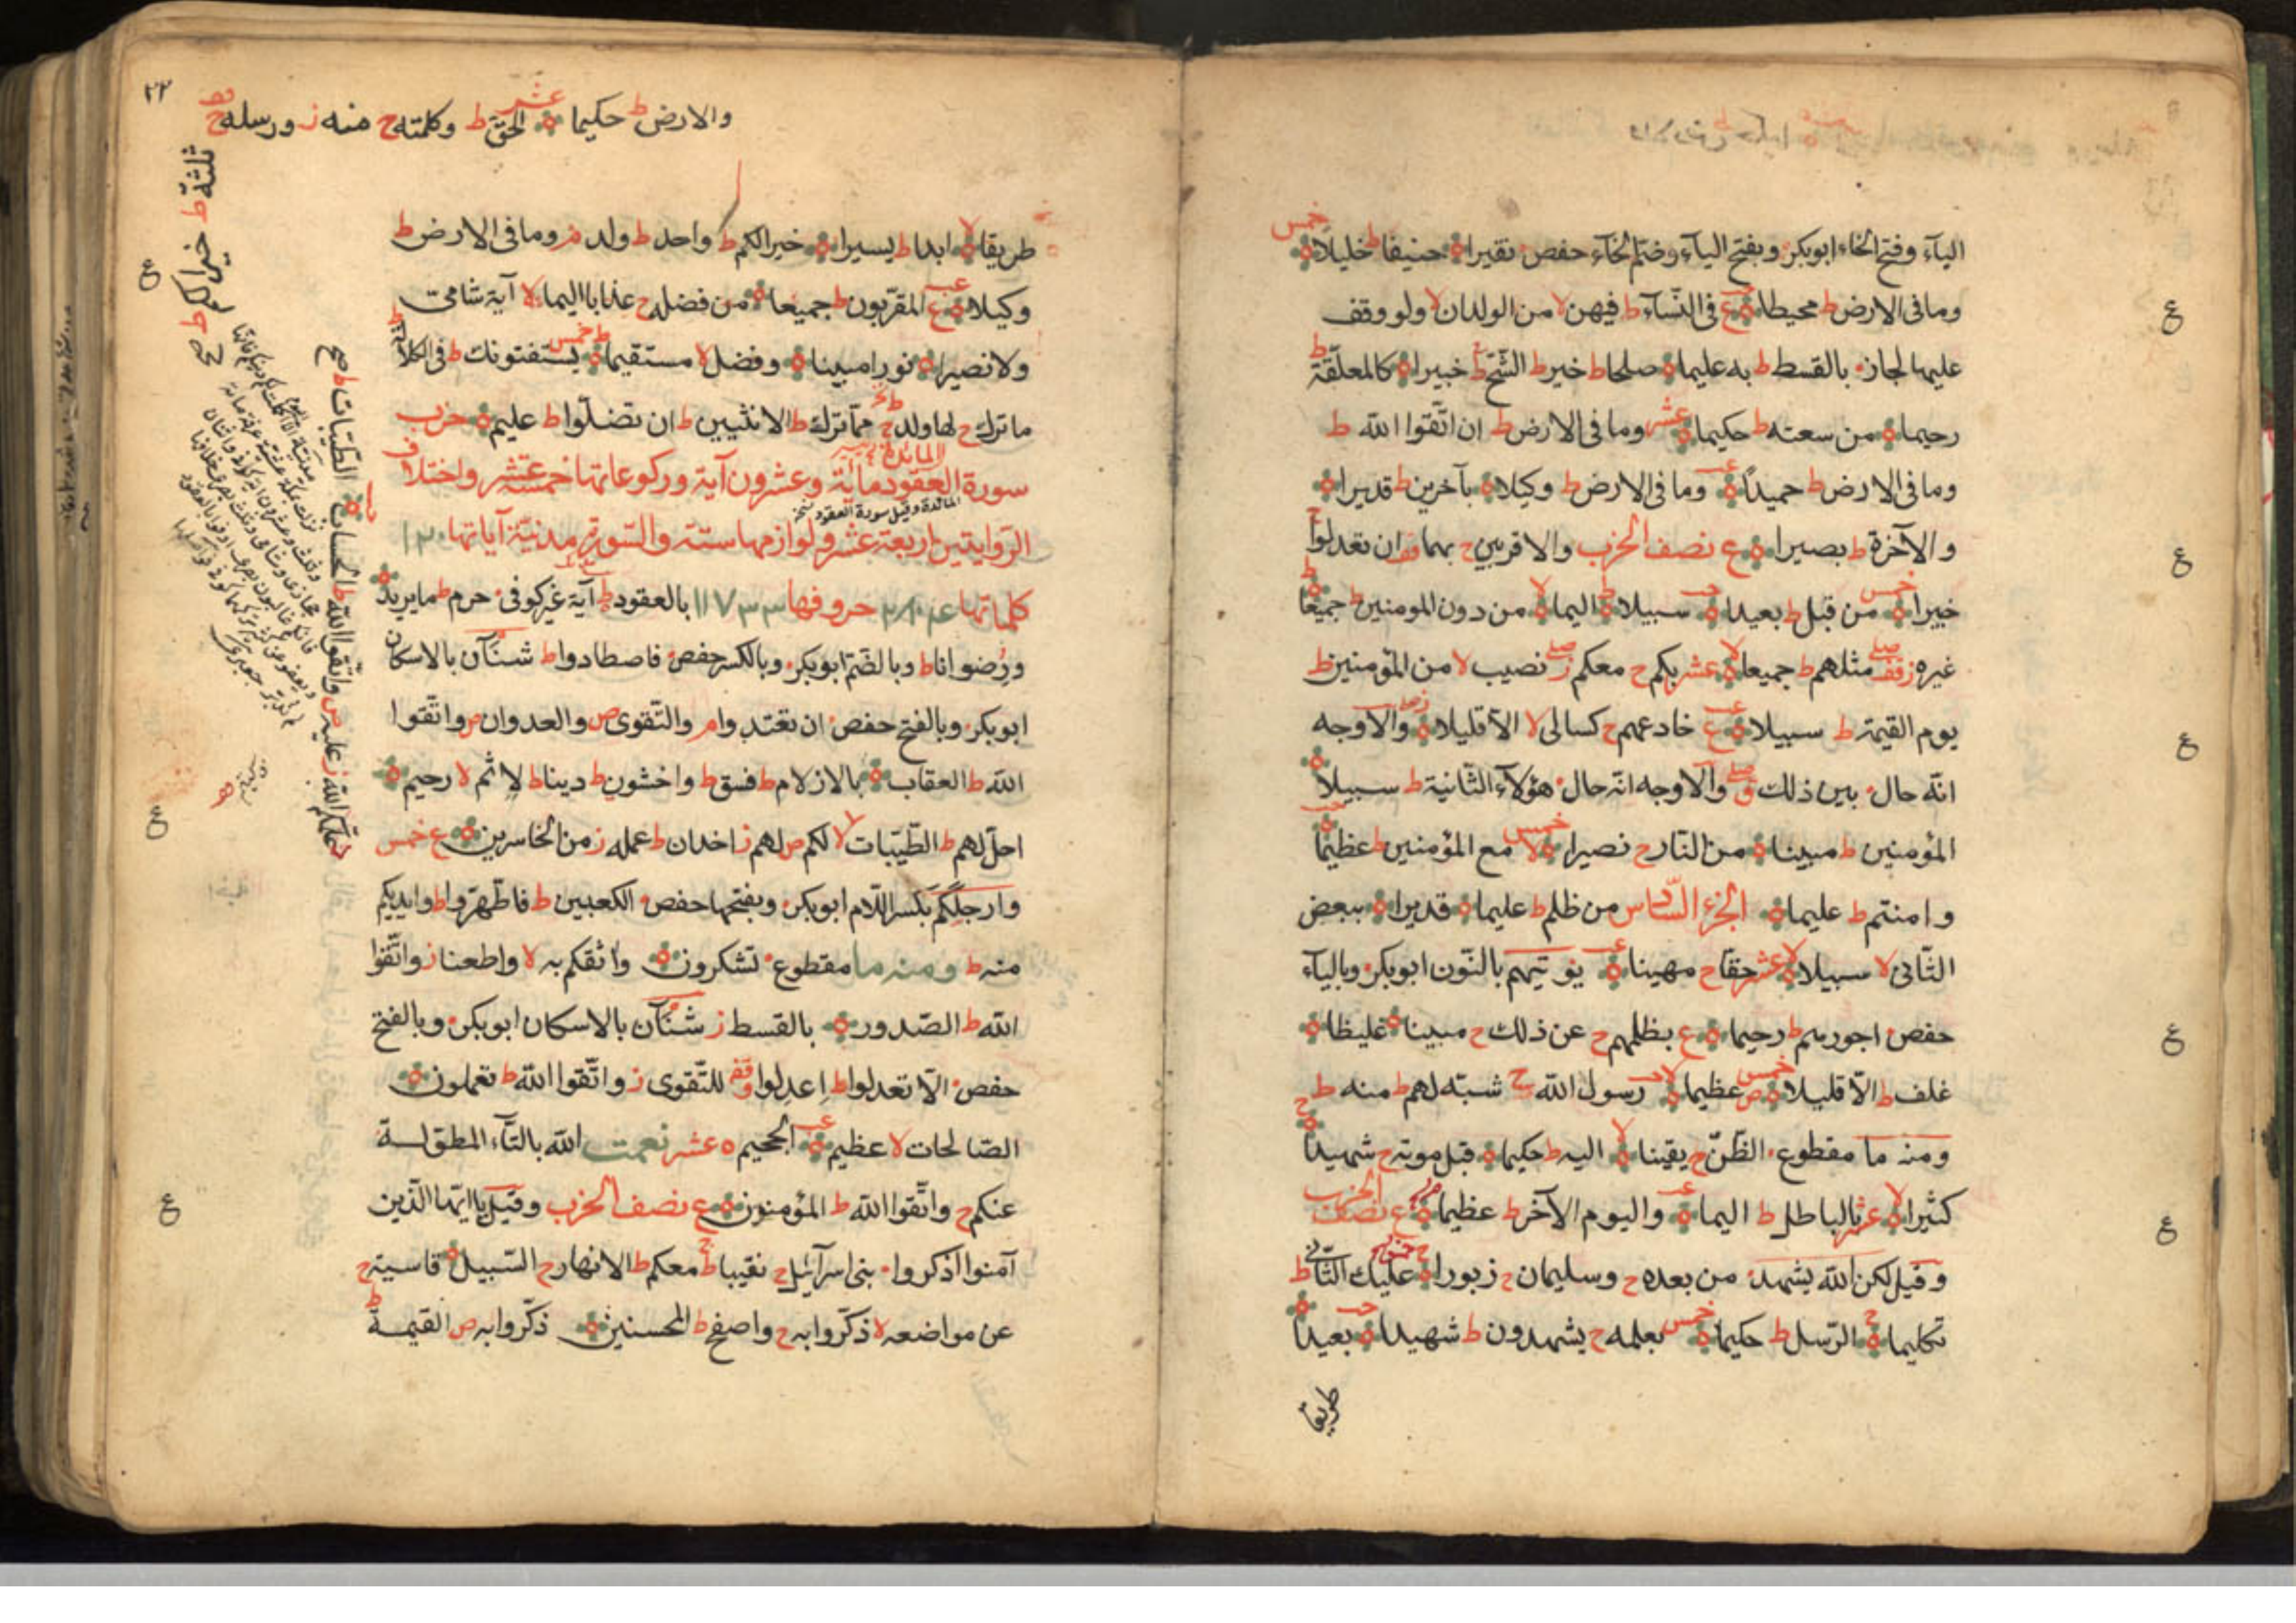 الياء وفتح الخاء ابوبكر وبفتح الياء وضم الخاء حفص نقيرا حنيفا ط خليلا خمس
وما فى الارض ط محيطا ع فى النساء ط فيهن لا من الولدان لا ولو وقف
عليها لجاز بالقسط ط به عليما صلحا ط خير ط الشح ط خبيرا كالمعلقة ط
رحيما من سعته ط حكيما عشر وما فى الارض ط ان اتقوا الله ط
وما فى الارض ط حميدا وما فى الارض ط وكيلا بآخرين ط قديرا
والآخرة ط بصيرا ع نصف الحزب والاقربين ح بهما قف ان تعدلوا ح
خبيرا خمس من قبل ط بعيدا سبيلا ط اليما لا من دون المومنين ط جميعا ط
غيره ز قف صلے مثلهم ط جميعا لا عشر بكم ح معكم ز صلے نصيب لا من المؤمنين ط
يوم القيمة ط سبيلا ع خادعهم ح كسالى لا الا قليلا والاوجه
انه حال بين ذلك ق صلے والاوجه انه حال هؤلاء الثانية ط سبيلا
المؤمنين ط مبينا من النار ح نصيرا لا خمس مع المؤمنين ط عظيما
وامنتم ط عليما الجزء السادس من ظلم ط عليما قديرا ببعض
الثانى لا سبيلا لا عشر حقا ح مهينا يؤتيهم بالنون ابوبكر وبالياء
حفص اجورهم ط رحيما ع بظلمهم ح عن ذلك ح مبينا غليظا
غلف ط الا قليلا ص خمس عظيما لا رسول الله ج شبه لهم ط منه ط
ومنه ما مقطوع الظن ح يقينا لا اليه ط حكيما قبل موته ح شهيدا ح
كثيرا لا عشر بالباطل ط اليما واليوم الآخر ط عظيما ع نصف الحزب
وقيل لكن الله يشهد من بعده ح وسليمان ح زبورا عليك الثانى ط
تكليما ح الرسل ط حكيما خمس بعلمه ح يشهدون ط شهيدا بعيدا
طريقا
٢٢
والارض ط حكيما عشر الحق ط وكلمته ح منه ز ورسله ح قف
ثلثة ط خيرا لكم ط صح
طريقا لا ابدا ط يسيرا خيرا لكم ط واحد ط ولد م وما فى الارض ط
وكيلا ع المقربون ط جميعا من فضله ح عذابا اليما لا آية شامى
ولا نصيرا نورا مبينا وفضل لا مستقيما ط خمس يستفتونك ط فى الكلالة ط
ما ترك ح لها ولد ط مما ترك ط الانثيين ط ان تضلوا ط عليم حزب
سورة العقود مأية وعشرون آية وركوعاتها خمسة عشر واختلاف
المائدة وقيل سورة العقود
الروايتين اربعة عشر ولوازمها ستة والسورة مدنية آياتها ١٢٠
كلماتها ٢٨٠٤ حروفها ١١٧٣٣ بالعقود ط آية غير كوفى حرم ط ما يريد
ورضوانا ط وبالضم ابوبكر وبالكسر حفص فاصطادوا ط شنآن بالاسكان
ابوبكر وبالفتح حفص ان تعتدوا م والتقوى ص والعدوان ص واتقوا
الله ط العقاب بالازلام ط فسق ط واخشون ط دينا ط لاثم لا رحيم
احل لهم ط الطيبات لا لكم ص لهم ز اخدان ط عمله ز من الخاسرين ع خمس
وارجلكم بكسر اللام ابوبكر وبفتحها حفص الكعبين ط فاطهروا ط وايديكم
منه ط ومنه ما مقطوع تشكرون واثقكم به لا واطعنا ز واتقوا
الله ط الصدور بالقسط ز شنآن بالاسكان ابوبكر وبالفتح
حفص الا تعدلوا ط اعدلوا قف للتقوى ز واتقوا الله ط تعملون
الصالحات لا عظيم الجحيم ٥ عشر نعمت الله بالتاء المطولة
عنكم ح واتقوا الله ط المؤمنون ع نصف الحزب وقيل يا ايها الذين
آمنوا اذكروا بنى اسرائيل ح نقيبا ط معكم ط الانهار ح السبيل قاسية ح
عن مواضعه لا ذكروا به ح واصفح ط المحسنين ذكروا به ص القيمة ط
الطيبات ط صح
الحساب واتقوا الله ط عليه ص علمكم الله ز